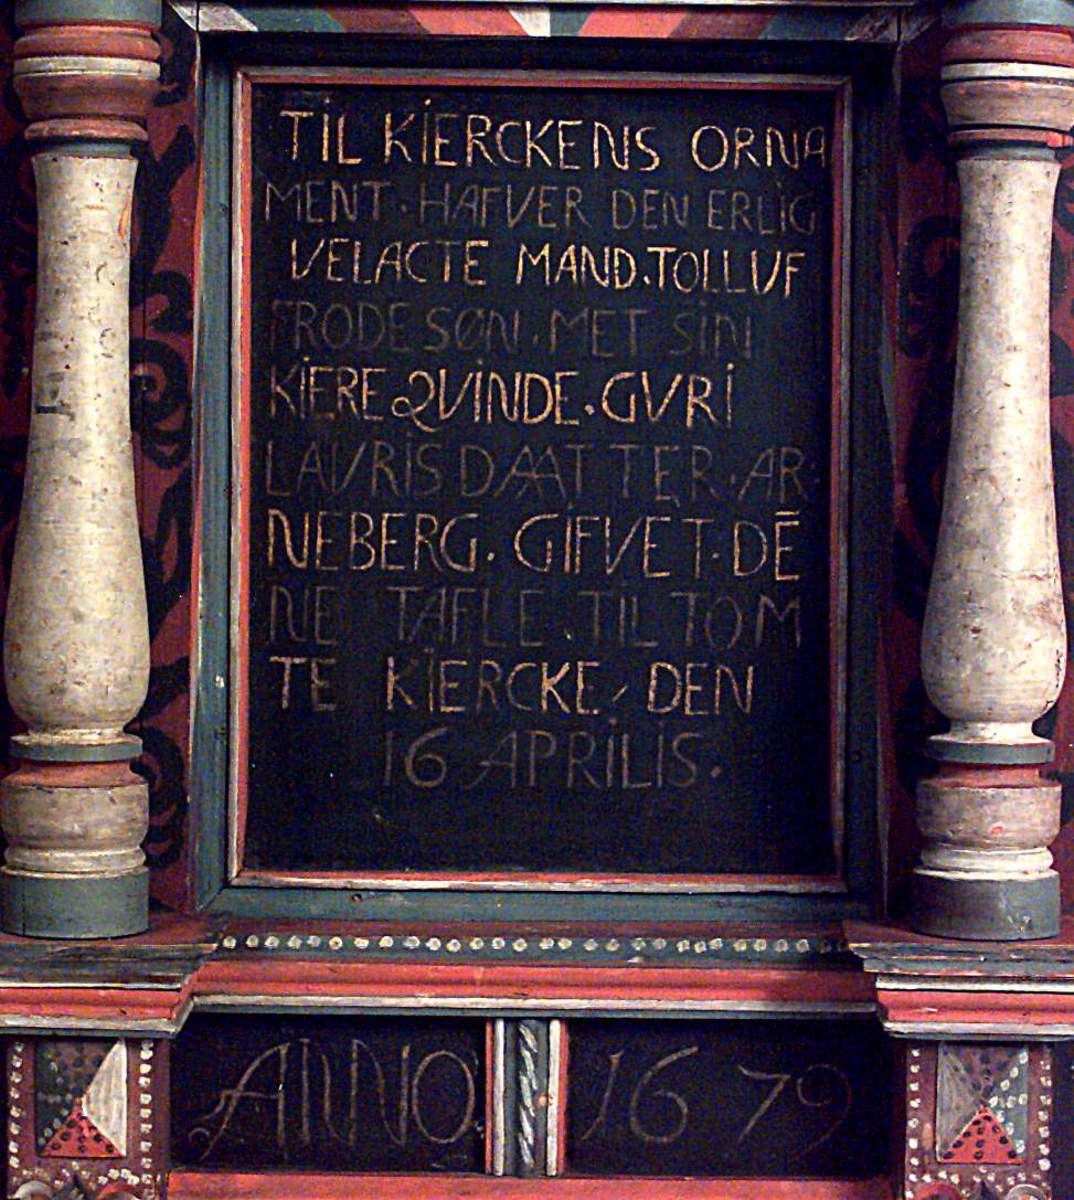 TIL KIERCKENS ORNA
MENT · HAFVER DEN ERLIG
VELACTE MAND. TOLLUF
FRODE SØN. MET SIN
KIERE QVINDE. GVRI
LAVRIS DAAT TER. AR:
NEBERG. GIFVET. DĒ
NE TAFLE TIL TOM
TE KIERCKE, DEN
16 APRILIS.
ANNO 1679